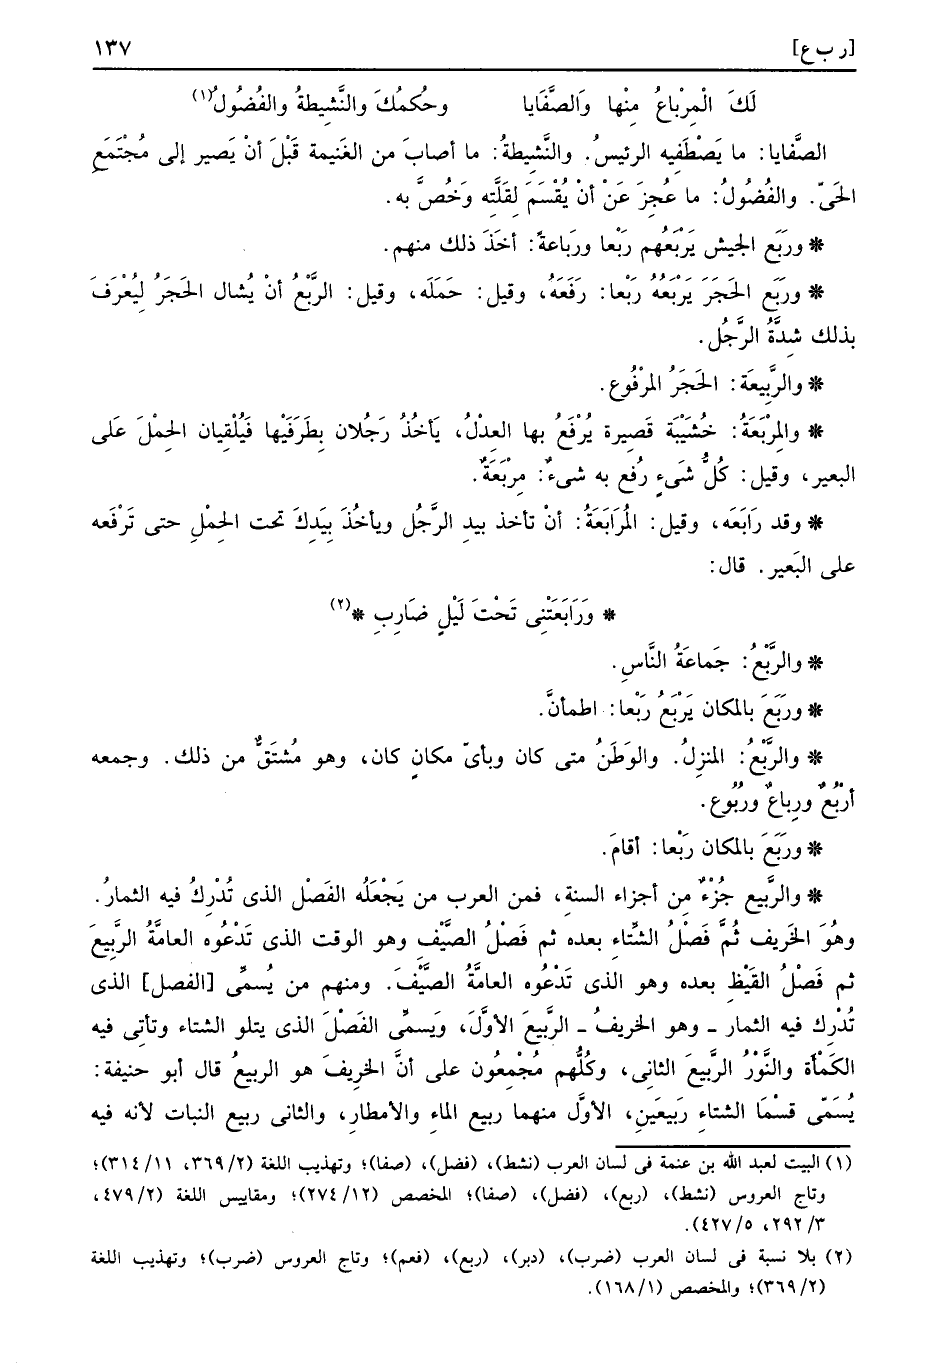 [ر ب ع] ١٣٧
لَكَ الْمِرْباعُ مِنْها وَالصَّفَايا وحُكمُكَ والنَّشِيطةُ والفُضُولُ(١)
الصَّفايا: ما يَصْطَفِيه الرئيسُ. والنَّشِيطة: ما أصابَ من الغَنيمة قَبْلَ أنْ يَصير إلى مُجْتَمَعِ
الحَىّ. والفُضُولُ: ما عُجِزَ عَنْ أنْ يُقْسَمَ لِقلَّته وَخُصَّ به.
❋ ورَبَع الجيش يَرْبَعُهم رَبْعا ورَباعةً: أخَذَ ذلك منهم.
❋ ورَبَع الحَجَرَ يَرْبَعُهُ رَبْعا: رَفَعَهُ، وقيل: حمَلَه، وقيل: الرَّبْعُ أنْ يُشال الحَجَرُ لِيُعْرَفَ
بذلك شِدَّةُ الرَّجُل.
❋ والرَّبِيعَة: الحَجَرُ المرْفُوع.
❋ والمِرْبَعَةُ: خُشَيْبَة قصيرة يُرْفَعُ بها العِدْلُ، يَأخُذُ رَجُلان بِطَرَفَيْها فَيُلْقِيان الحِمْلَ على
البعير، وقيل: كُلُّ شَىءٍ رُفع به شىءٌ: مِرْبَعَةٌ.
❋ وقد رَابَعَه، وقيل: المُرَابَعَةُ: أنْ تأخذ بيدِ الرَّجُل ويأخُذَ بِيَدِكَ تحت الحِمْلِ حتى تَرْفَعه
على البَعير. قال:
❋ وَرَابَعَتْنِى تَحْتَ لَيْلٍ ضَارِبِ ❋(٢)
❋ والرَّبْعُ: جَماعَةُ النَّاسِ.
❋ ورَبَعَ بالمكان يَرْبَعُ رَبْعا: اطمأنَّ.
❋ والرَّبْعُ: المنزِلُ. والوَطَنُ متى كان وبأىّ مكانٍ كان، وهو مُشتَقٌّ من ذلك. وجمعه
أرْبُعٌ ورِباعٌ ورُبُوع.
❋ ورَبَعَ بالمكان رَبْعا: أقامَ.
❋ والرَّبيع جُزْءٌ مِن أجزاء السنة، فمن العرب من يَجْعَلُه الفَصْل الذى تُدْرِكُ فيه الثمارُ.
وهُوَ الخَريف ثُمَّ فَصْلُ الشِّتاءِ بعده ثم فَصْلُ الصَّيْفِ وهو الوقت الذى تَدْعُوه العامَّةُ الرَّبِيعَ
ثم فَصْلُ القَيْظِ بعده وهو الذى تَدْعُوه العامةُ الصَّيْفَ. ومنهم من يُسمِّى [الفصل] الذى
تُدْرِك فيه الثمار ـ وهو الخريفُ ـ الرَّبيعَ الأوَّلَ، وَيَسمِّى الفَصْلَ الذى يتلو الشتاء وتأتى فيه
الكَمْأة والنَّوْرُ الرَّبيعَ الثانى، وكُلُّهم مُجْمِعُون على أنَّ الخَريفَ هو الربيعُ قال أبو حنيفة:
يُسَمّى قسْمَا الشتاءِ رَبيعَينِ، الأوَّل منهما ربيع الماءِ والأمطارِ، والثانى ربيع النبات لأنه فيه
(١) البيت لعبد الله بن عنمة فى لسان العرب (نشط)، (فضل)، (صفا)؛ وتهذيب اللغة (٣٦٩/٢، ٣١٤/١١)؛
وتاج العروس (نشط)، (ربع)، (فضل)، (صفا)؛ المخصص (٢٧٤/١٢)؛ ومقاييس اللغة (٤٧٩/٢،
٢٩٢/٣، ٤٢٧/٥).
(٢) بلا نسبة فى لسان العرب (ضرب)، (دبر)، (ربع)، (فعم)؛ وتاج العروس (ضرب)؛ وتهذيب اللغة
(٣٦٩/٢)؛ والمخصص (١٦٨/١).